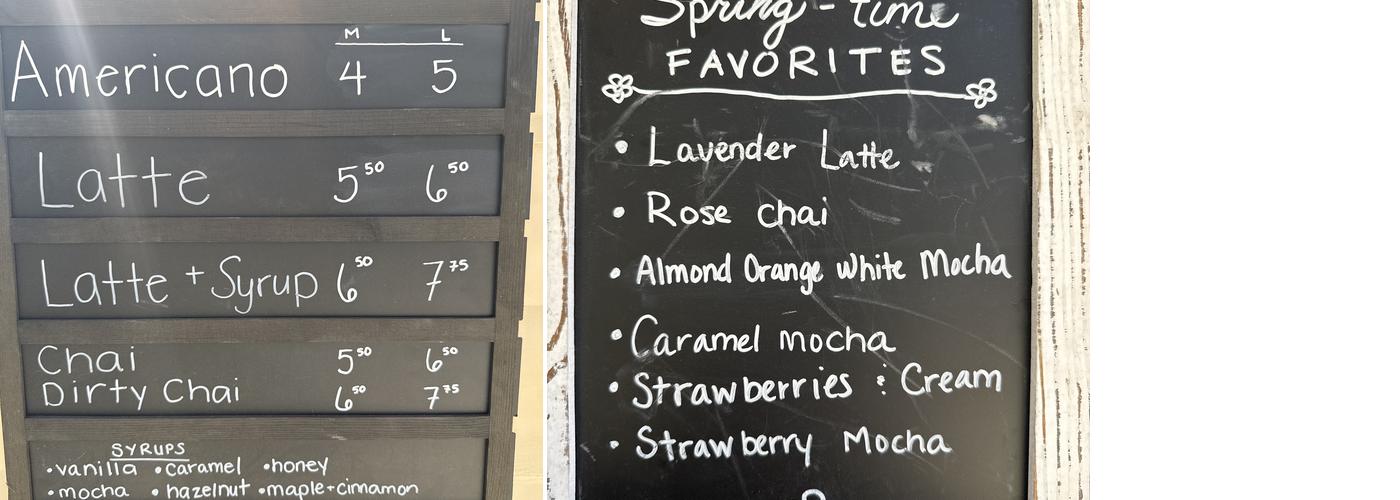 M L
Americano 4 5
Latte 5 50 6 50
Latte + Syrup 6 50 7 75
Chai 5 50 6 50
Dirty Chai 6 50 7 75
SYRUPS
• vanilla • caramel • honey
• mocha • hazelnut • maple + cinnamon
Spring - time
FAVORITES
• Lavender Latte
• Rose Chai
• Almond Orange White Mocha
• Caramel mocha
• Strawberries : Cream
• Strawberry Mocha